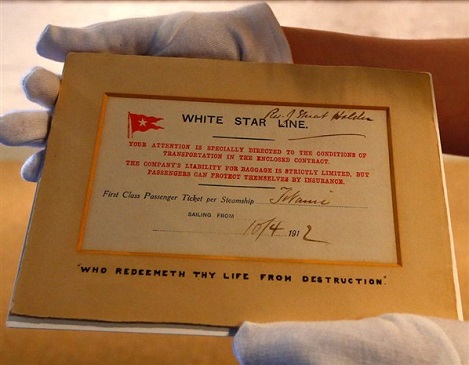 Rev. J Stuart Holden
WHITE STAR LINE.
YOUR ATTENTION IS SPECIALLY DIRECTED TO THE CONDITIONS OF
TRANSPORTATION IN THE ENCLOSED CONTRACT.
THE COMPANY'S LIABILITY FOR BAGGAGE IS STRICTLY LIMITED, BUT
PASSENGERS CAN PROTECT THEMSELVES BY INSURANCE.
First Class Passenger Ticket per Steamship Titanic
SAILING FROM
10/4 1912
"WHO REDEEMETH THY LIFE FROM DESTRUCTION."